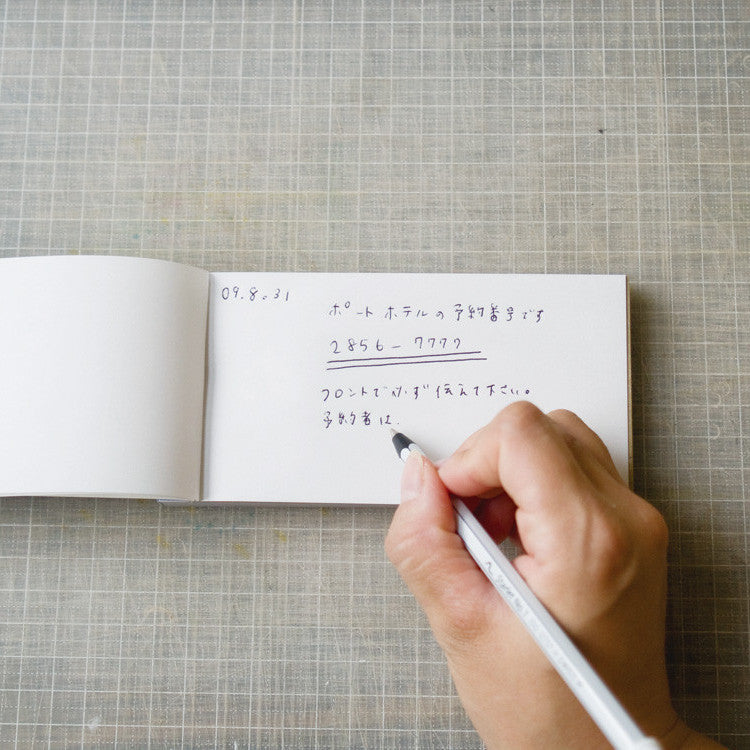 09.8.31
ポートホテルの予約番号です
2856-7777
フロントで必ず伝えて下さい。
予約者は、